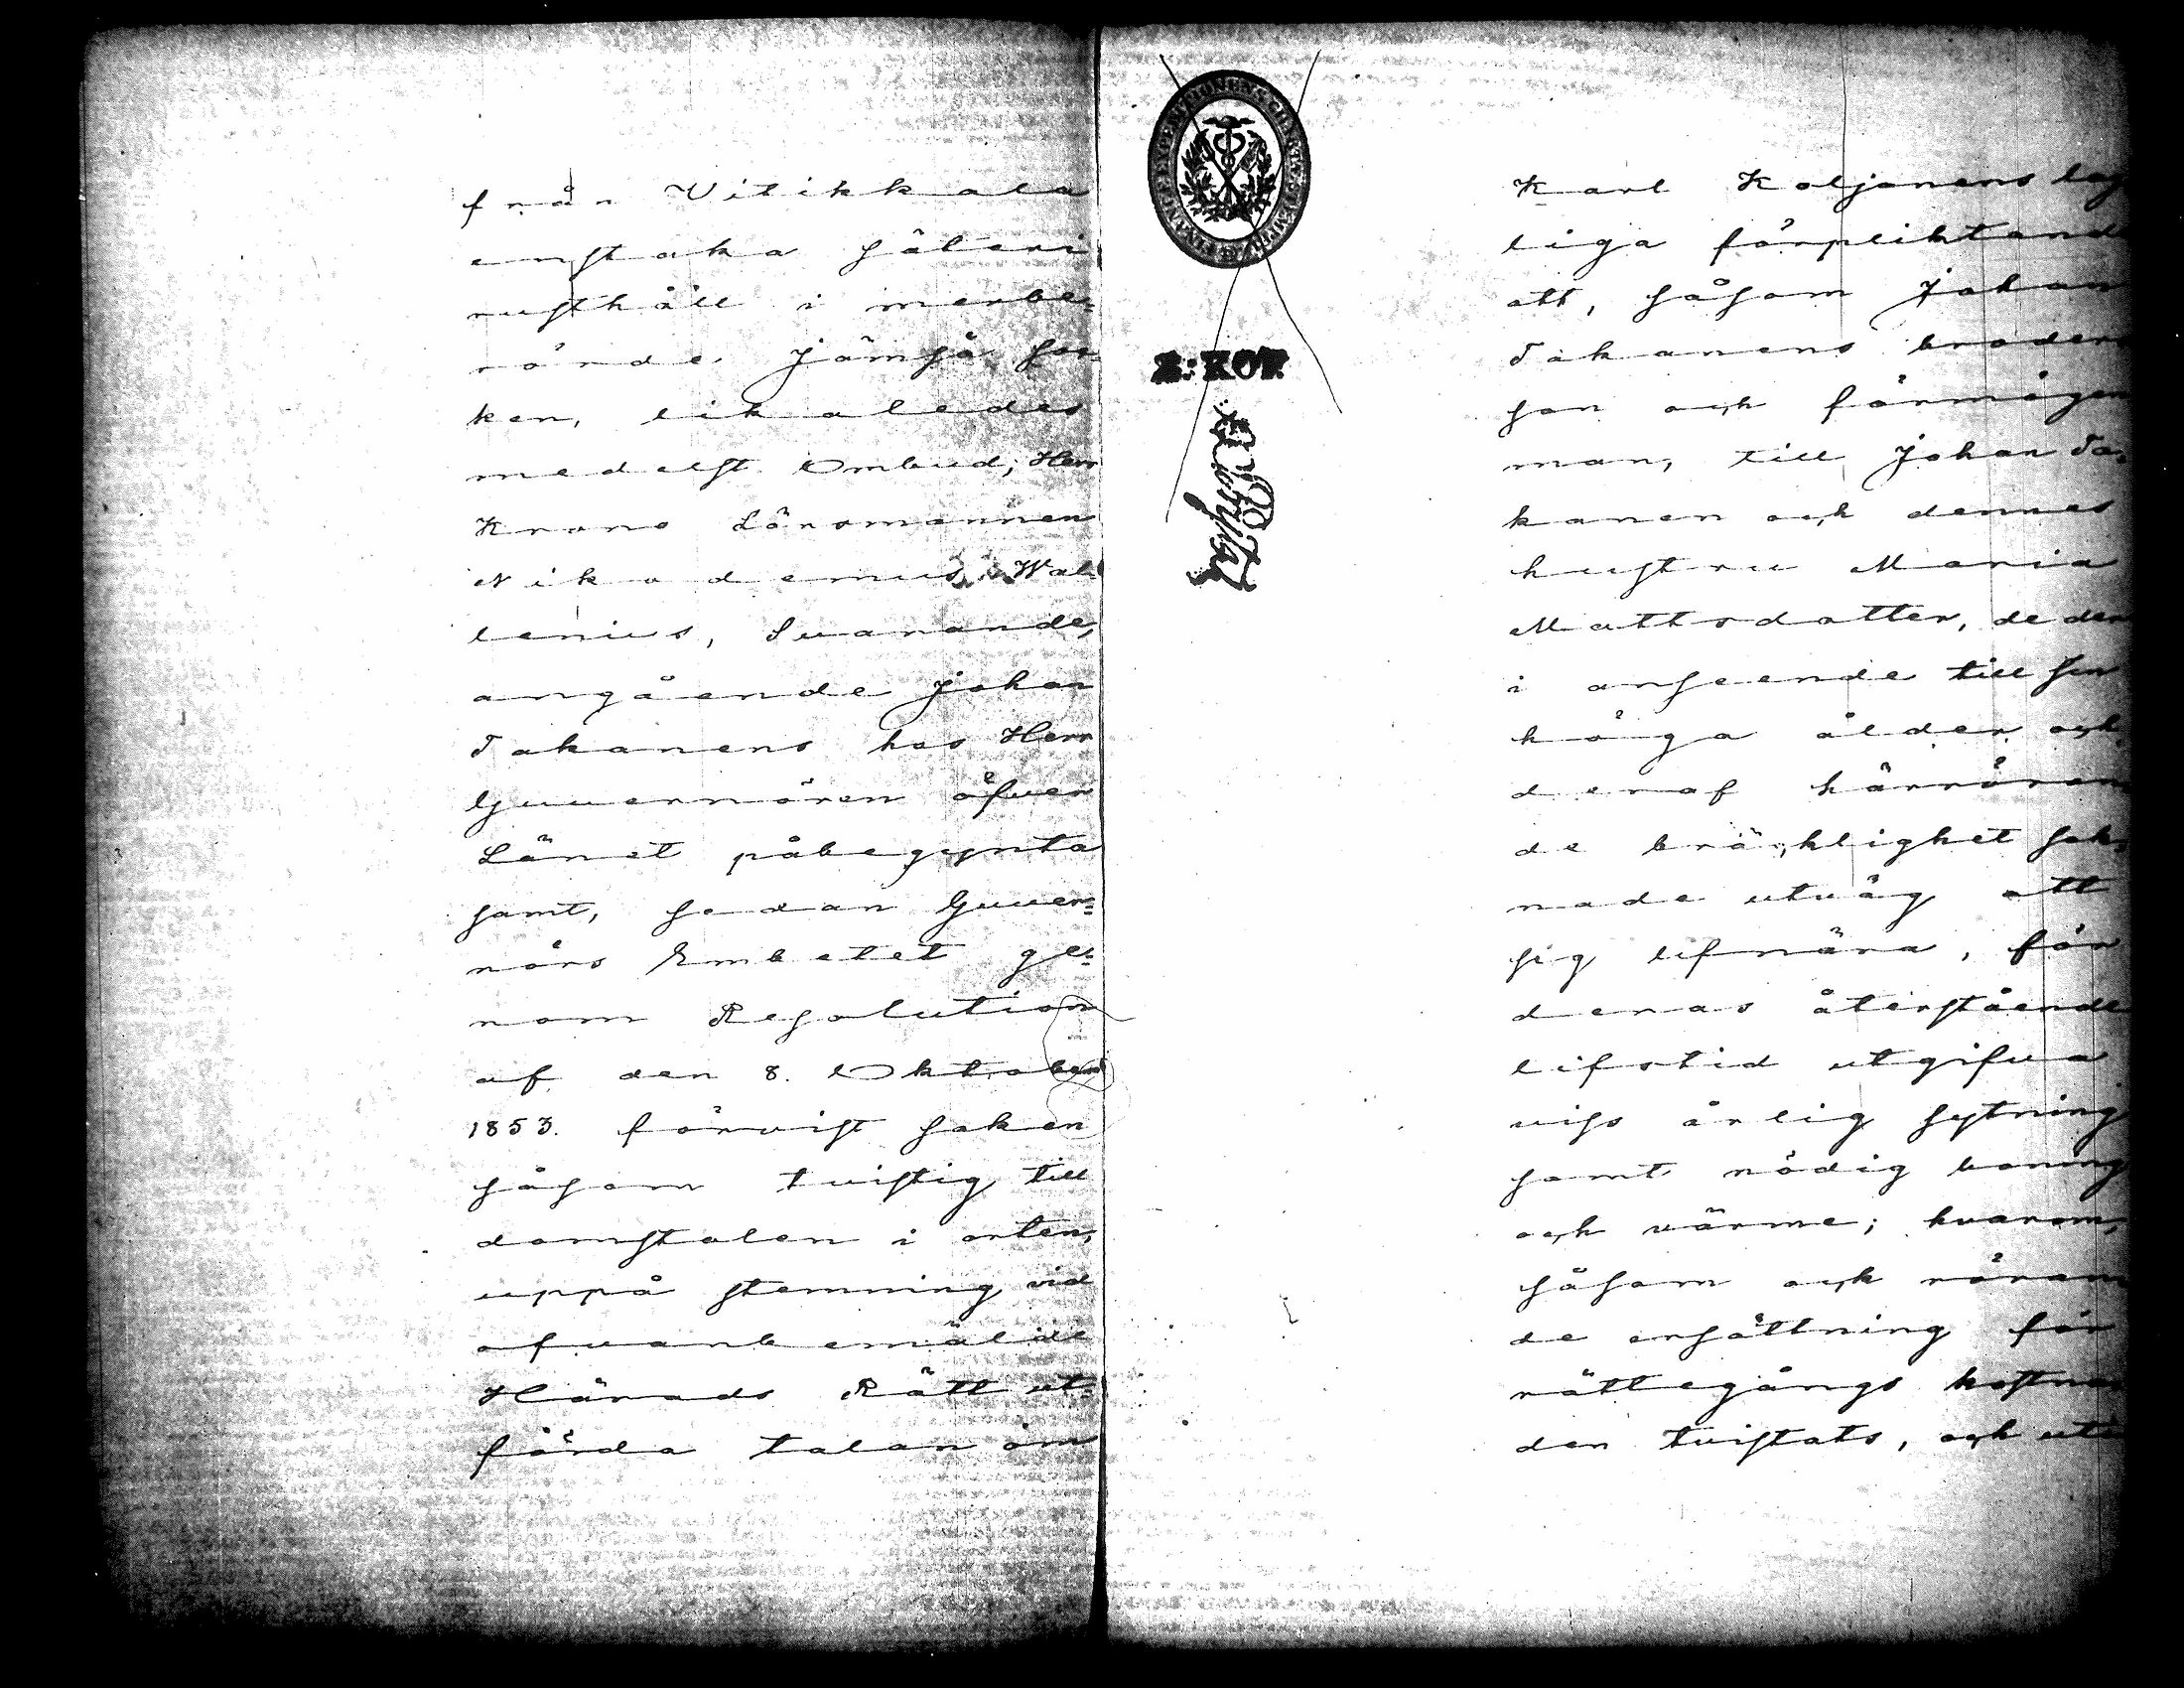 från Vitikkala
enstaka säteri
rusthåll i merbe=
rörde Jämsä soc=
ken, likaledes
medelst Ombud, Herr
Krono Länsmannen
Nikodemus Wal=
lenius, Svarande,
angående Johan
Takanens hos Herr
Guvernören öfver
Länet påbegynta
samt, sedan Guver=
nörs Embetet ge=
nom Resolution
af den 8. Oktober
1853. förvist saken
såsom tvistig till
domstolen i orten,
uppå stemning vid
ofvanbemälde
Härads Rätt ut=
förda talan om
2: KOP.
Karl Koljonens lag
liga förpliktande
att, såsom Johan
Takanens broders
son och förmögen
man, till Johan Ta=
kanen och dennes
hustru Maria
Mattsdotter, de der
i anseende till sin
höga ålder och
deraf härröran
de bräcklighet sak=
nade utväg att
sig lifnära, för
deras återstående
lifstid utgifva
viss årlig sytning
samt nödig boning
och värme; hvarom,
såsom och röran
de ersättning för
rättegångs kostna
den tvistats, och uti